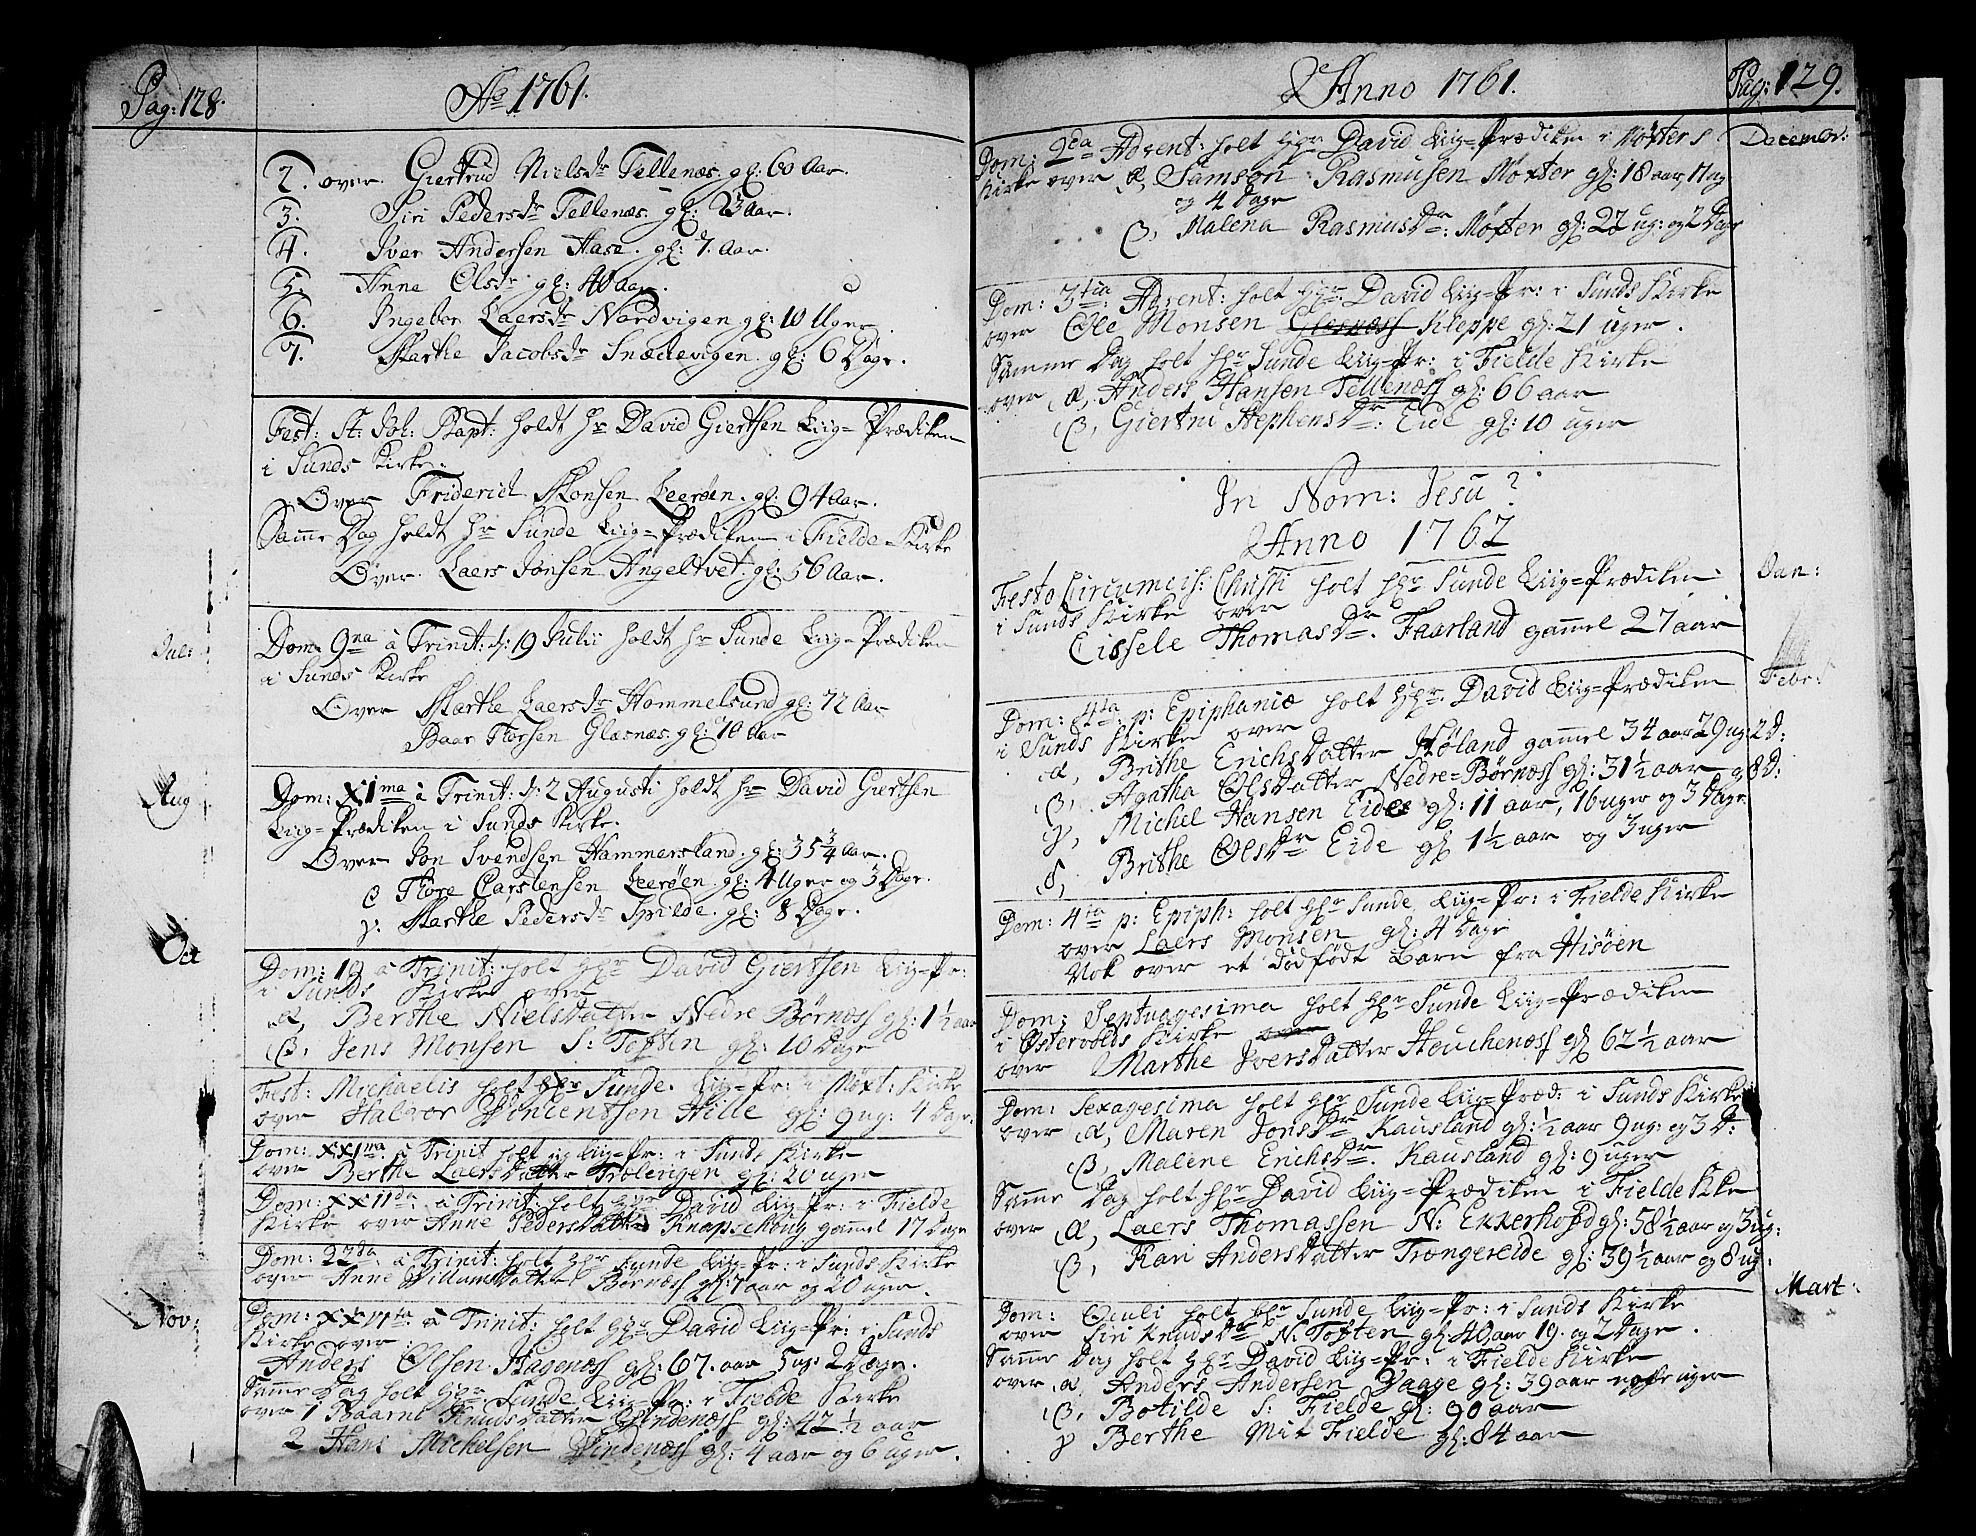 Pag: 128.
Ao 1761.
2. over. Giertrud Nielsdr Tellenæs. gl: 60 Aar.
3. Siri Pedersdr Tellenæs. gl: 23 Aar.
4. Iver Andersen Hase. gl: 7. Aar.
5. Anne Olsdr gl: 40 Aar.
6. Ingebor Laersdr Nordvigen gl: 10 Uger.
7. Marthe Jacobsdr Snædevigen. gl: 6 Dage.
Fest: St: Joh: Bapt: holdt Hr David Giertsen Liig=Prædiken
i Sunds Kirke.
Over Friderich Monsen Leerøen. gl: 94 Aar.
Samme Dag holdt Hr Sunde Liig=Prædiken i Fielde-Kirke
Over. Laers Jonsen Angeltvet. gl: 56 Aar.
Jul:
Dom. 9na à Trinit: d: 19 Julii holdt Hr Sunde Liig=Prædiken
i Sunds Kirke
Over Marthe Laersdr Hommelsund gl: 72 Aar
Baar Thorsen Glæsnæs. gl: 70 Aar
Aug
Dom: XIma à Trinit: d: 2 Augusti holdt Hr David Giertsen
Liig=Prædiken i Sunds Kirke.
Over Jon Svendsen Hammersland. gl: 35 3/4 Aar.
Thore Carstensen Leerøen gl: 4 Uger og 3 Dage.
γ. Marthe Pedersdr Spilde. gl: 8 Dage.
Oct
Dom: 19 à Trinit: holt Hr David Giertsen Liig=Pr:
i Sunds Kirke over
α, Berthe Nielsdatter Nedre Børnæss gl: 1 1/2 aar
β, Jens Monsen S: Toften gl: 10 Dage
Fest: Michaelis holt Hr Sunde. Liig=Pr: i Møxt: Kirke
over Halvor Vincentsen Hille gl: 9 ug: 4 Dage.
Dom: XXIma à Trinit holt Liig=Pr: i Sunds Kirke
over Berthe Laersdatter Trølevigen gl: 20 uger
Dom: XXIIda: à Trinit: holt Hr David Liig=Pr: i Fielde
Kirke over Anne Pedersdatter Knapschoug gammel 17 Dage
Dom: 22da: à Trinit: holt Hr Sunde Liig=Pr: i Sunds Kirke
over Anne Villumsdatter Børnæss gl: 1 aar og 20 uger.
Nov:
à Trinit: holt Hr David Liig=Pr: i Sunds
Kirke over
Anders Olsen Hagenæss gl: 67. aar 5 ug: 2 Dage.
Samme Dag holt Hr Sunde Liig=Pr: i Fielde Kirke
over 1 Baarni Knudsdatter Vindenæss gl: 42 1/2 aar
2 Hans Michelsen Vindenæss gl: 4 aar og 6 uger.
Anno 1761.
Pag: 129.
Decembr:
Dom: 2da Advent: holt Hr David Liig=Prædiken i Møxters
Kirke over α, Samson Rasmusen Møxter gl: 18 aar, 17 ug
og 4 Dage
β, Malena Rasmusdr: Møxter gl: 22 ug: og 2 Dage
Dom: 3tia Advent: holt Hr: David Liig=Pr: i Sunds Kirke
over Ole Monsen Glesnæss Kleppe gl: 21 uger.
Samme Dag holt Hr Sunde Liig=Pr: i Fielde Kirke
over α, Anders Hansen Tellenæss gl: 66 aar
β, Giertru Stephensdr: Eide gl: 10 uger
In Nom: Jesu
Anno 1762
Jan:
Festo Circumcis: Christi holt Hr Sunde Liig=Prædiken
i Sunds Kirke over
Cissele Thomasdr. Faarland gammel 27 aar
Febr:
Dom: 4ta p: Epiphaniæ holt Hr. David Liig=Prædiken
i Sunds Kirke over
α, Brithe Erichsdatter Høland gammel 34 aar 29 ug 2 D:
β, Agatha Olsdatter Nedre-Børnæss gl: 31 1/2 aar og 8 D:
γ, Michel Hansen Eide gl: 11 aar, 16 uger og 3 Dage
δ, Brithe Olsdr Eide gl 1 1/2 aar og 3 uger
Dom: 4ta p: Epiph: holt Hr Sunde Liig=Pr: i Fielde Kirke
over Laers Monsen gl: 4 Dage
Nok over et dødfødt Barn fra Hisøen
Dom: Septuagesima holt Hr Sunde Liig=Prædiken
i Østervolds Kirke over
over Marthe Iversdatter Steuchenæss gl 62 1/2 aar
Dom: Sexagesima holt Hr Sunde Liig=Præd: i Sunds Kirke
over α, Maren Jonsdr Kausland gl: 1/2 aar 9 ug: og 3 D:
β, Malene Erichsdr. Kausland gl: 9 uger
Samme Dag holt Hr David Liig=Prædiken i Fielde Kke
over α, Laers Thomassen N: Ekkerhofd gl: 58 1/2 aar og 3 ug:
β, Kari Andersdatter Trængereide gl: 39 1/2 aar og 8 ug.
Mart:
Dom: Oculi holt Hr Sunde Liig=Pr: i Sunds Kirke
over Siri Knudsdr N: Toften gl: 40 aar 19. og 2 Dage.
Samme Dag holt Hr David Liig=Pr: i Fielde Kirke
over α Anders Andersen Vaage gl: 39 aar uger
β, Botilde S: Fielde gl: 90 aar
γ Berthe Mit Fielde gl: 84 aar